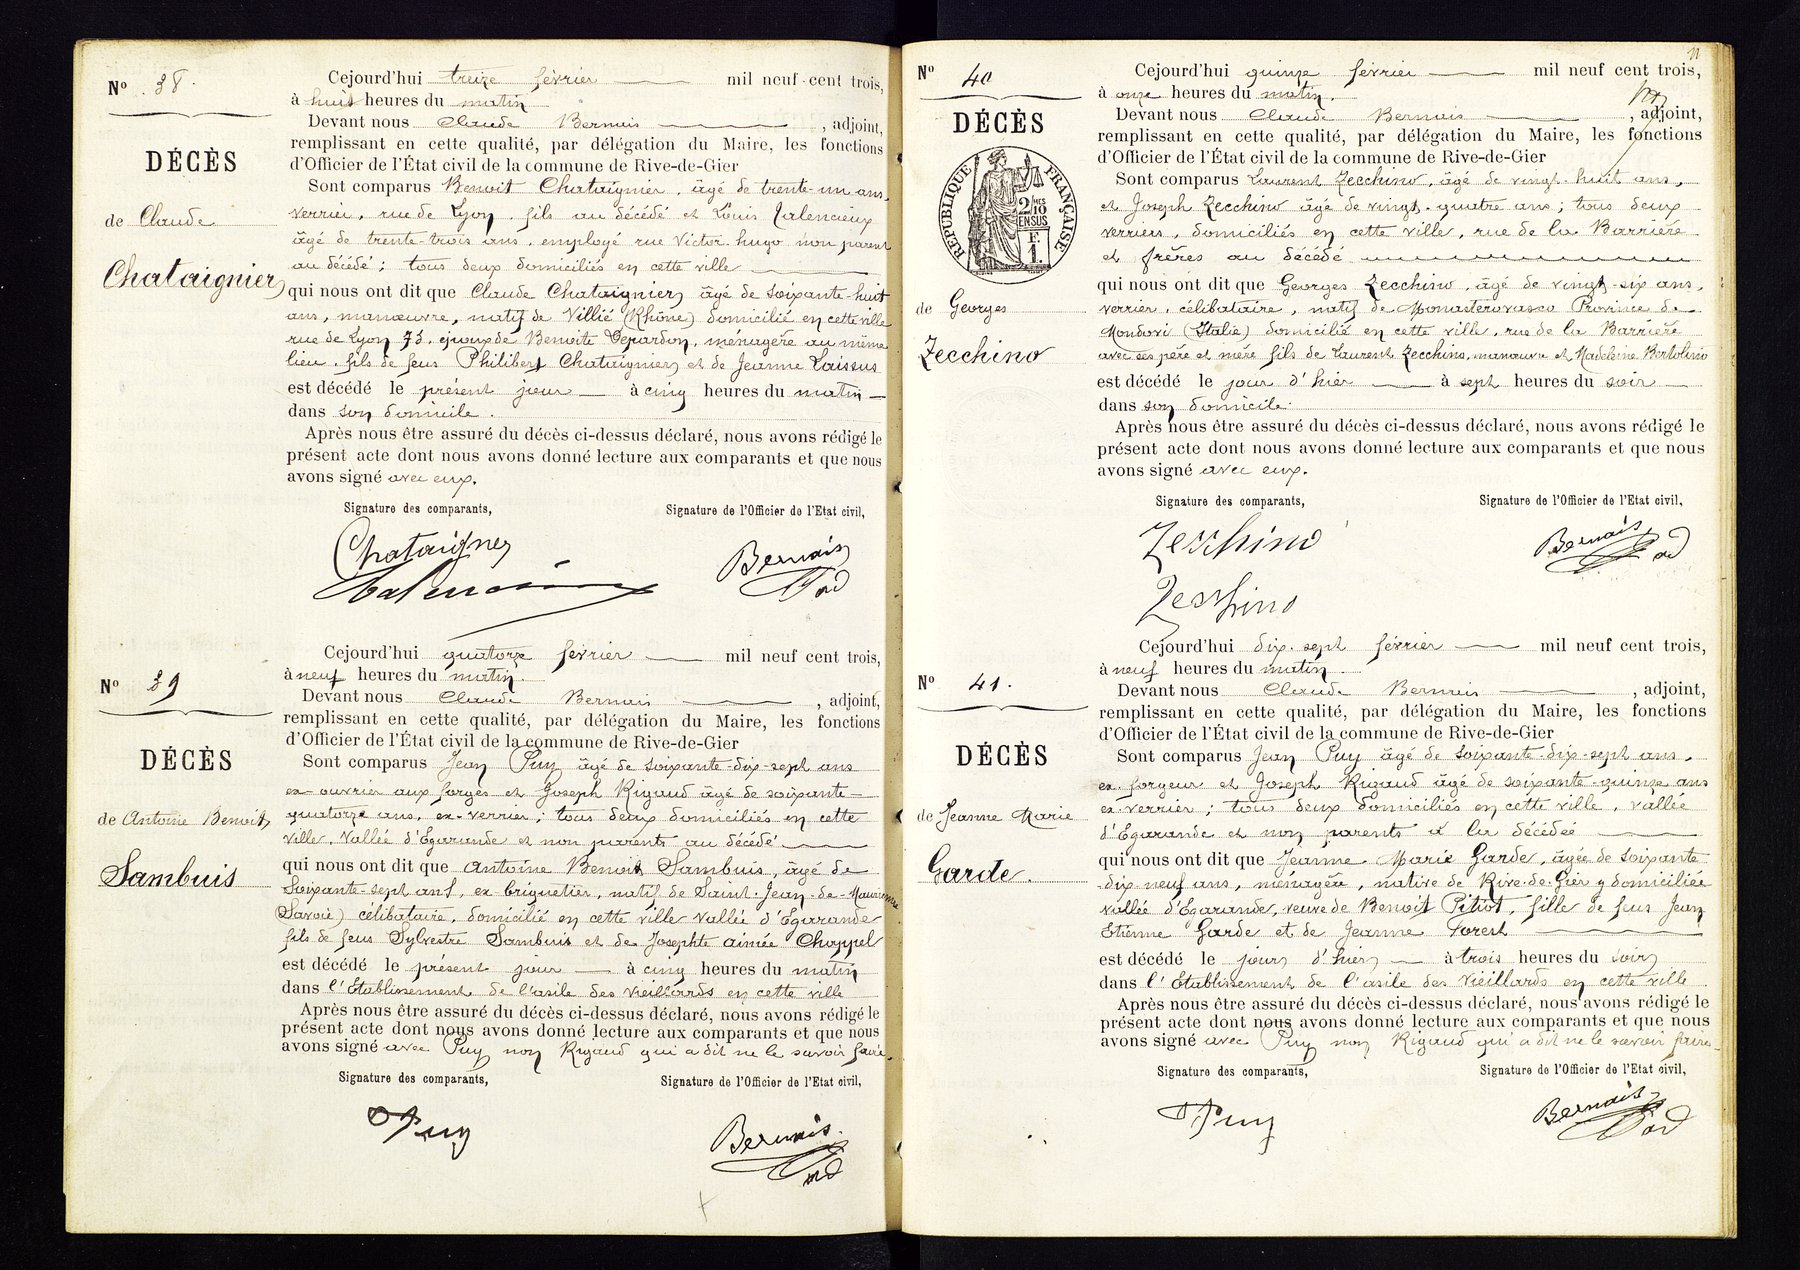 Nº 38.
DÉCÈS
de Claude
Chataignier
Cejourd'hui treize février mil neuf cent trois,
à huit heures du matin
Devant nous Claude Bernais, adjoint,
remplissant en cette qualité, par délégation du Maire, les fonctions
d'Officier de l'État civil de la commune de Rive-de-Gier
Sont comparus Benoit Chataignier, âgé de trente-un ans,
verrier, rue de Lyon, fils au décédé et Louis Valencieux
âgé de trente trois ans, employé rue Victor hugo non parent
au décédé; tous deux domiciliés en cette ville
qui nous ont dit que Claude Chataignier âgé de soixante-huit
ans, manœuvre, natif de Villié (Rhône) domicilié en cette ville
rue de Lyon 73, époux de Benoite Depardon, ménagère au même
lieu, fils de feus Philibert Chataignier et de Jeanne Laissus
est décédé le présent jour à cinq heures du matin
dans son domicile.
Après nous être assuré du décès ci-dessus déclaré, nous avons rédigé le
présent acte dont nous avons donné lecture aux comparants et que nous
avons signé avec eux.
Signature des comparants, Signature de l'Officier de l'Etat civil,
Chataigner Bernais
Nº 39
DÉCÈS
de Antoine Benoit
Sambuis
Cejourd'hui quatorze février mil neuf cent trois,
à neuf heures du matin.
Devant nous Claude Bernais, adjoint,
remplissant en cette qualité, par délégation du Maire, les fonctions
d'Officier de l'État civil de la commune de Rive-de-Gier
Sont comparus Jean Puy âgé de soixante-dix-sept ans
ex-ouvrier aux forges et Joseph Rigaud âgé de soixante-
quatorze ans, ex-verrier; tous deux domiciliés en cette
ville, Vallée d'Egarande et non parents au décédé
qui nous ont dit que Antoine Benoit Sambuis, âgé de
Soixante-sept ans, ex briquetier, natif de Saint-Jean-de-Maurienne
(Savoie) célibataire, domicilié en cette ville vallée d'Egarande
fils de feus Sylvestre Sambuis et de Josephte aimée Chappel
est décédé le présent jour à cinq heures du matin
dans l'Etablissement de l'asile des vieillards en cette ville
Après nous être assuré du décès ci-dessus déclaré, nous avons rédigé le
présent acte dont nous avons donné lecture aux comparants et que nous
avons signé avec Puy non Rigaud qui a dit ne le savoir faire.
Signature des comparants, Signature de l'Officier de l'Etat civil,
Puy Bernais
Nº 40
DÉCÈS
RÉPUBLIQUE FRANÇAISE
2/10 EN SUS
F. 1.
de Georges
Zecchino
Cejourd'hui quinze février mil neuf cent trois,
à onze heures du matin.
Devant nous Claude Bernais, adjoint,
remplissant en cette qualité, par délégation du Maire, les fonctions
d'Officier de l'État civil de la commune de Rive-de-Gier
Sont comparus Laurent Zecchino, âgé de vingt-huit ans,
et Joseph Zecchino âgé de vingt-quatre ans; tous deux
verriers, domiciliés en cette ville, rue de la Barrière
et frères au décédé
qui nous ont dit que Georges Zecchino, âgé de vingt-six ans,
verrier, célibataire, natif de Monasterovasco Province de
Mondovi (Italie) domicilié en cette ville, rue de la Barrière
avec ses père et mère fils de Laurent Zecchino, manœuvre et Madeleine Bertolino
est décédé le jour d'hier à sept heures du soir
dans son domicile.
Après nous être assuré du décès ci-dessus déclaré, nous avons rédigé le
présent acte dont nous avons donné lecture aux comparants et que nous
avons signé avec eux.
Signature des comparants, Signature de l'Officier de l'Etat civil,
Zecchino Bernais
Zecchino
Nº 41.
DÉCÈS
de Jeanne Marie
Garde.
Cejourd'hui dix-sept février mil neuf cent trois,
à neuf heures du matin.
Devant nous Claude Bernais, adjoint,
remplissant en cette qualité, par délégation du Maire, les fonctions
d'Officier de l'État civil de la commune de Rive-de-Gier
Sont comparus Jean Puy âgé de soixante-dix-sept ans,
ex-forgeur et Joseph Rigaud âgé de soixante-quinze ans
ex-verrier; tous deux domiciliés en cette ville, vallée
d'Egarande et non parents à la décédée
qui nous ont dit que Jeanne Marie Garde, âgée de soixante
dix-neuf ans, ménagère, native de Rive-de-Gier y domiciliée
vallée d'Egarande, veuve de Benoit Pitiot, fille de feus Jean
Etienne Garde et de Jeanne Forest
est décédé le jour d'hier à trois heures du soir
dans l'Etablissement de l'asile des vieillards en cette ville
Après nous être assuré du décès ci-dessus déclaré, nous avons rédigé le
présent acte dont nous avons donné lecture aux comparants et que nous
avons signé avec Puy non Rigaud qui a dit ne le savoir faire.
Signature des comparants, Signature de l'Officier de l'Etat civil,
Puy Bernais